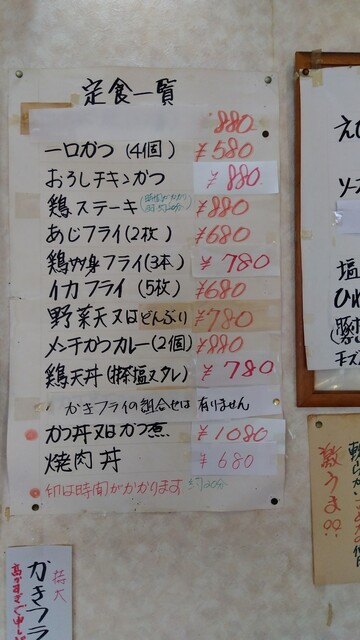 定食一覧
880
一口かつ(4個) ¥580
おろしチキンかつ ¥880
鶏ステーキ ¥880
あじフライ(2枚) ¥680
鶏ササ身フライ(3本) ¥780
イカフライ(5枚) ¥680
野菜天又はどんぶり ¥780
メンチかつカレー(2個) ¥880
鶏天丼(抹茶塩又タレ) ¥780
かきフライの組合せは有りません
かつ丼又はかつ煮 ¥1080
焼肉丼 ¥680
印は時間がかかります 約20分
特大
かきフラ
激うま!!
塩